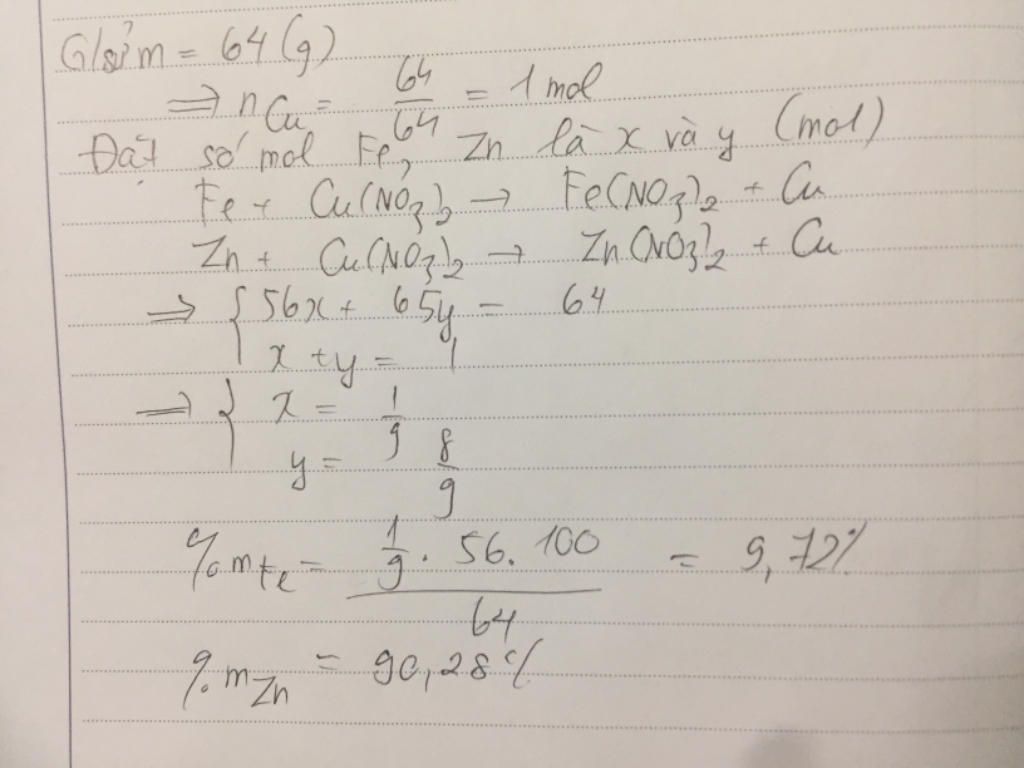 G/sử m = 64 (g)
=> nCu = 64/64 = 1 mol
Đặt số mol Fe, Zn là x và y (mol)
Fe + Cu(NO3)2 → Fe(NO3)2 + Cu
Zn + Cu(NO3)2 → Zn(NO3)2 + Cu
=> { 56x + 65y = 64
x + y = 1
=> { x = 1/9
y = 8/9
%mFe = (1/9 . 56. 100)/64 = 9,72%
%mZn = 90,28%